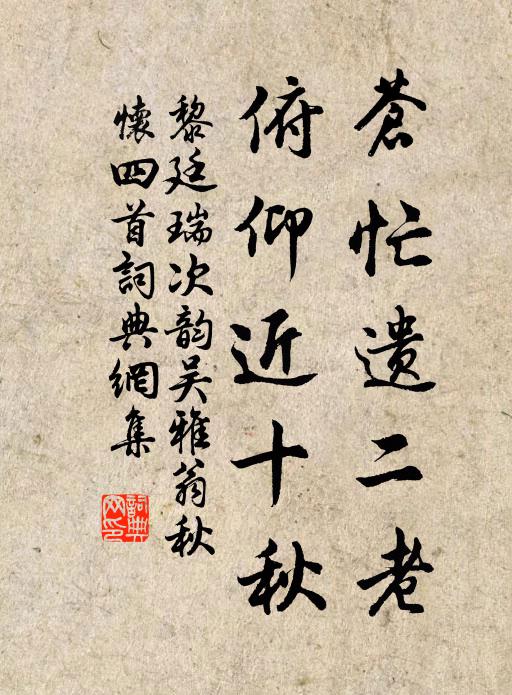 蒼忙遗二老
俯仰近十秋
黎廷瑞次韵吴雅翁秋
懷四首詞典網集
詞典
网印